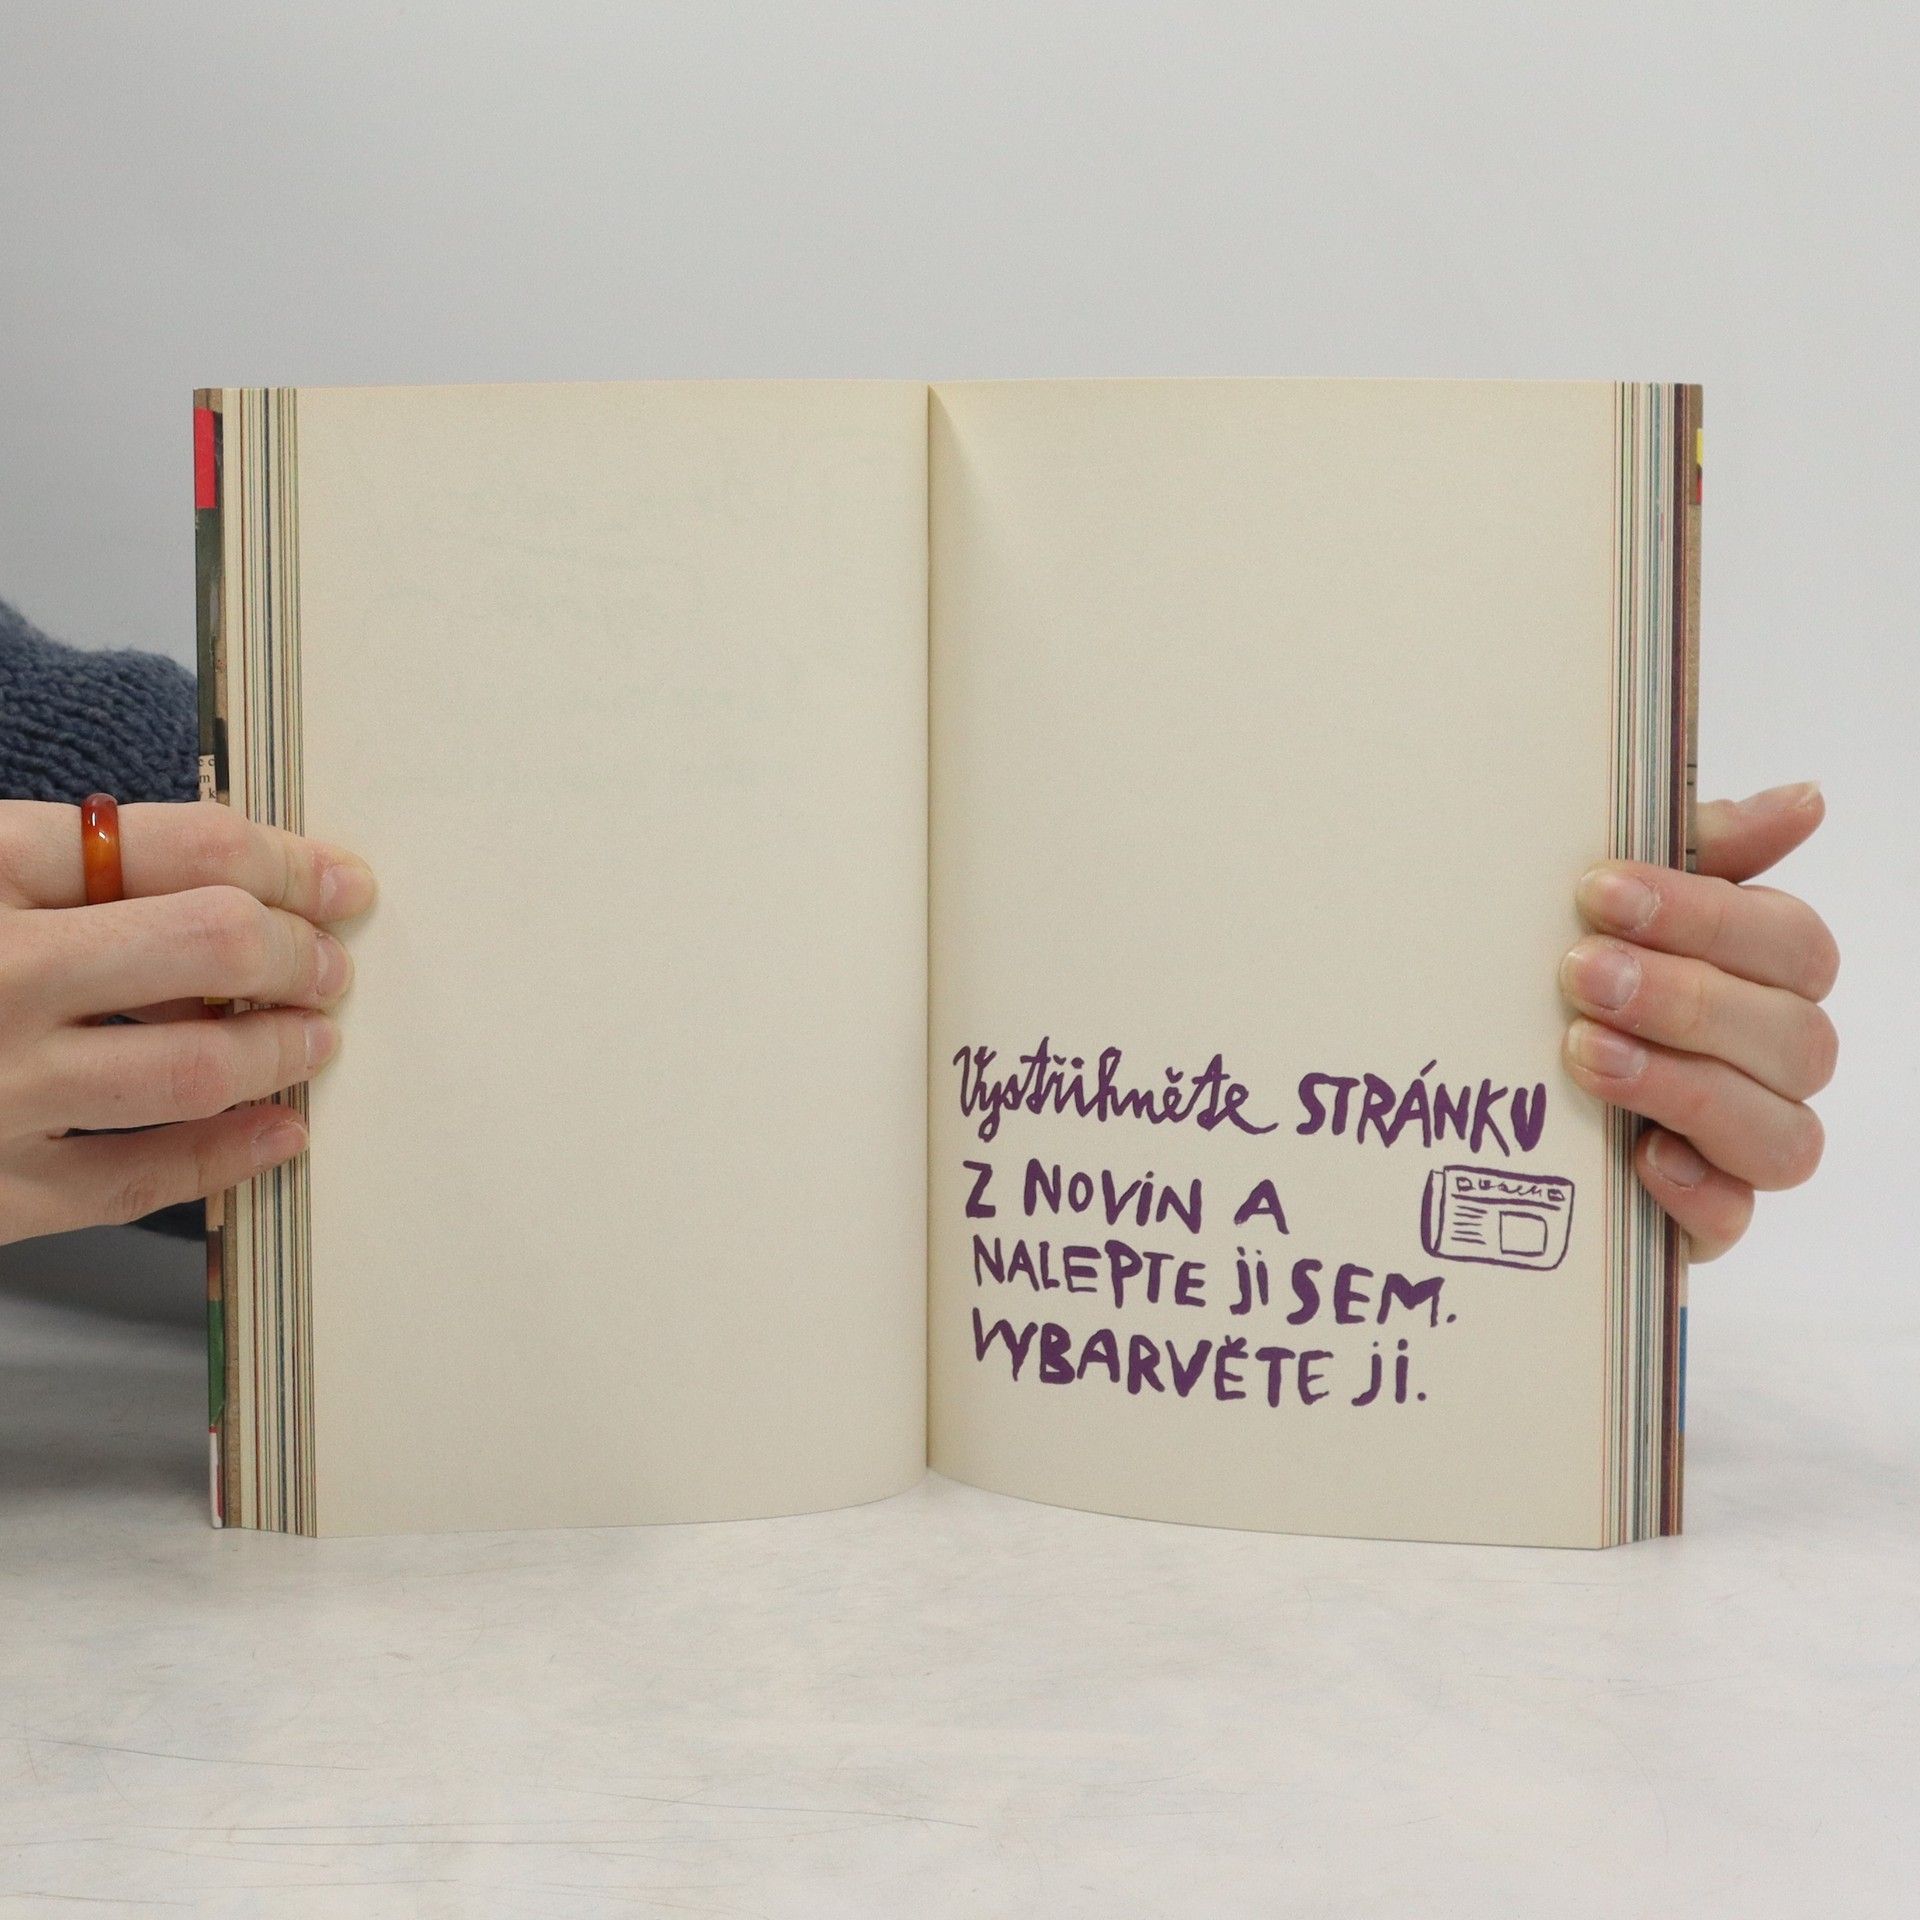 Vystřihněte STRÁNKU
Z NOVIN A
NALEPTE JI SEM.
VYBARVĚTE JI.